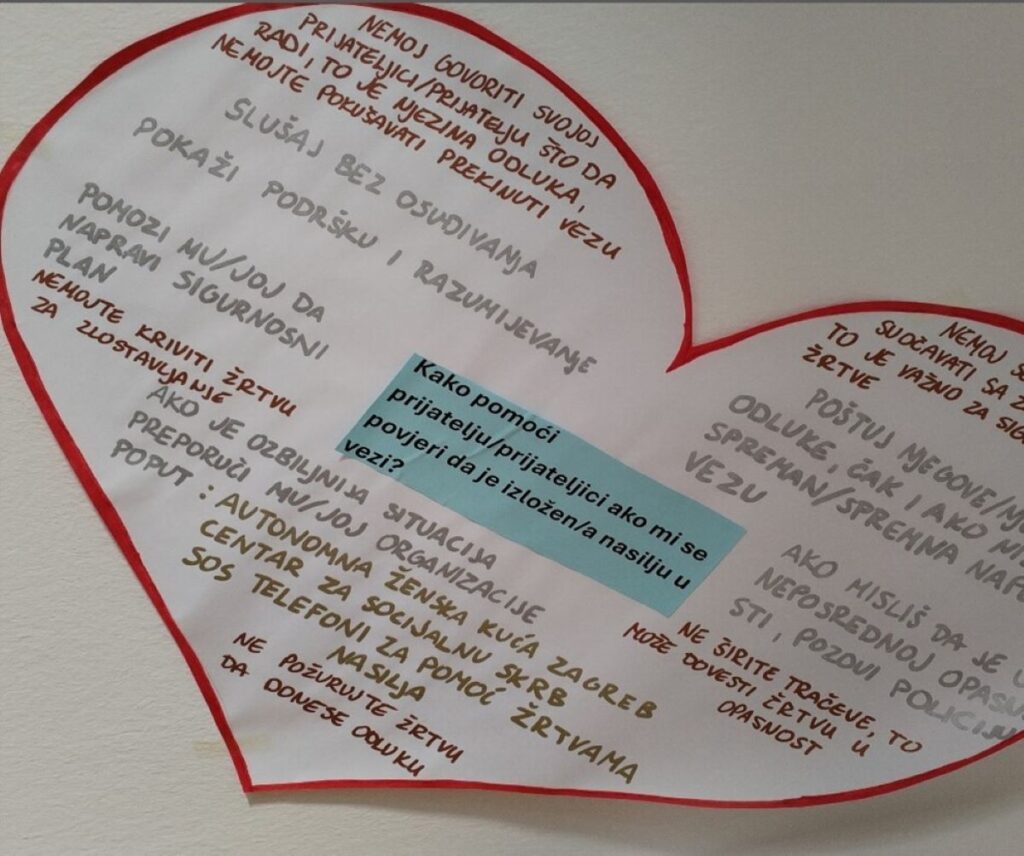 NEMOJ GOVORITI SVOJOJ
PRIJATELJICI/PRIJATELJU ŠTO DA
RADI, TO JE NJEZINA ODLUKA,
NEMOJTE POKUŠAVATI PREKINUTI VEZU
SLUŠAJ BEZ OSUĐIVANJA
POKAŽI PODRŠKU I RAZUMIJEVANJE
POMOZI MU/JOJ DA
NAPRAVI SIGURNOSNI
PLAN
NEMOJTE KRIVITI ŽRTVU
ZA ZLOSTAVLJANJE
Kako pomoći
prijatelju/prijateljici ako mi se
povjeri da je izložen/a nasilju u
vezi?
AKO JE OZBILJNIJA SITUACIJA
PREPORUČI MU/JOJ ORGANIZACIJE
POPUT : AUTONOMNA ŽENSKA KUĆA ZAGREB
CENTAR ZA SOCIJALNU SKRB
SOS TELEFONI ZA POMOĆ ŽRTVAMA
NASILJA
NE POŽURUJTE ŽRTVU
DA DONESE ODLUKU
NEMOJ
SUOČAVATI SA
TO JE VAŽNO ZA
ŽRTVE
POŠTUJ NJEGOVE/
ODLUKE, ČAK I AKO
SPREMAN/SPREMNA
VEZU
AKO MISLIŠ DA JE U
NEPOSREDNOJ
STI, POZOVI POLICIJU
NE ŠIRITE TRAČEVE, TO
MOŽE DOVESTI ŽRTVU U
OPASNOST